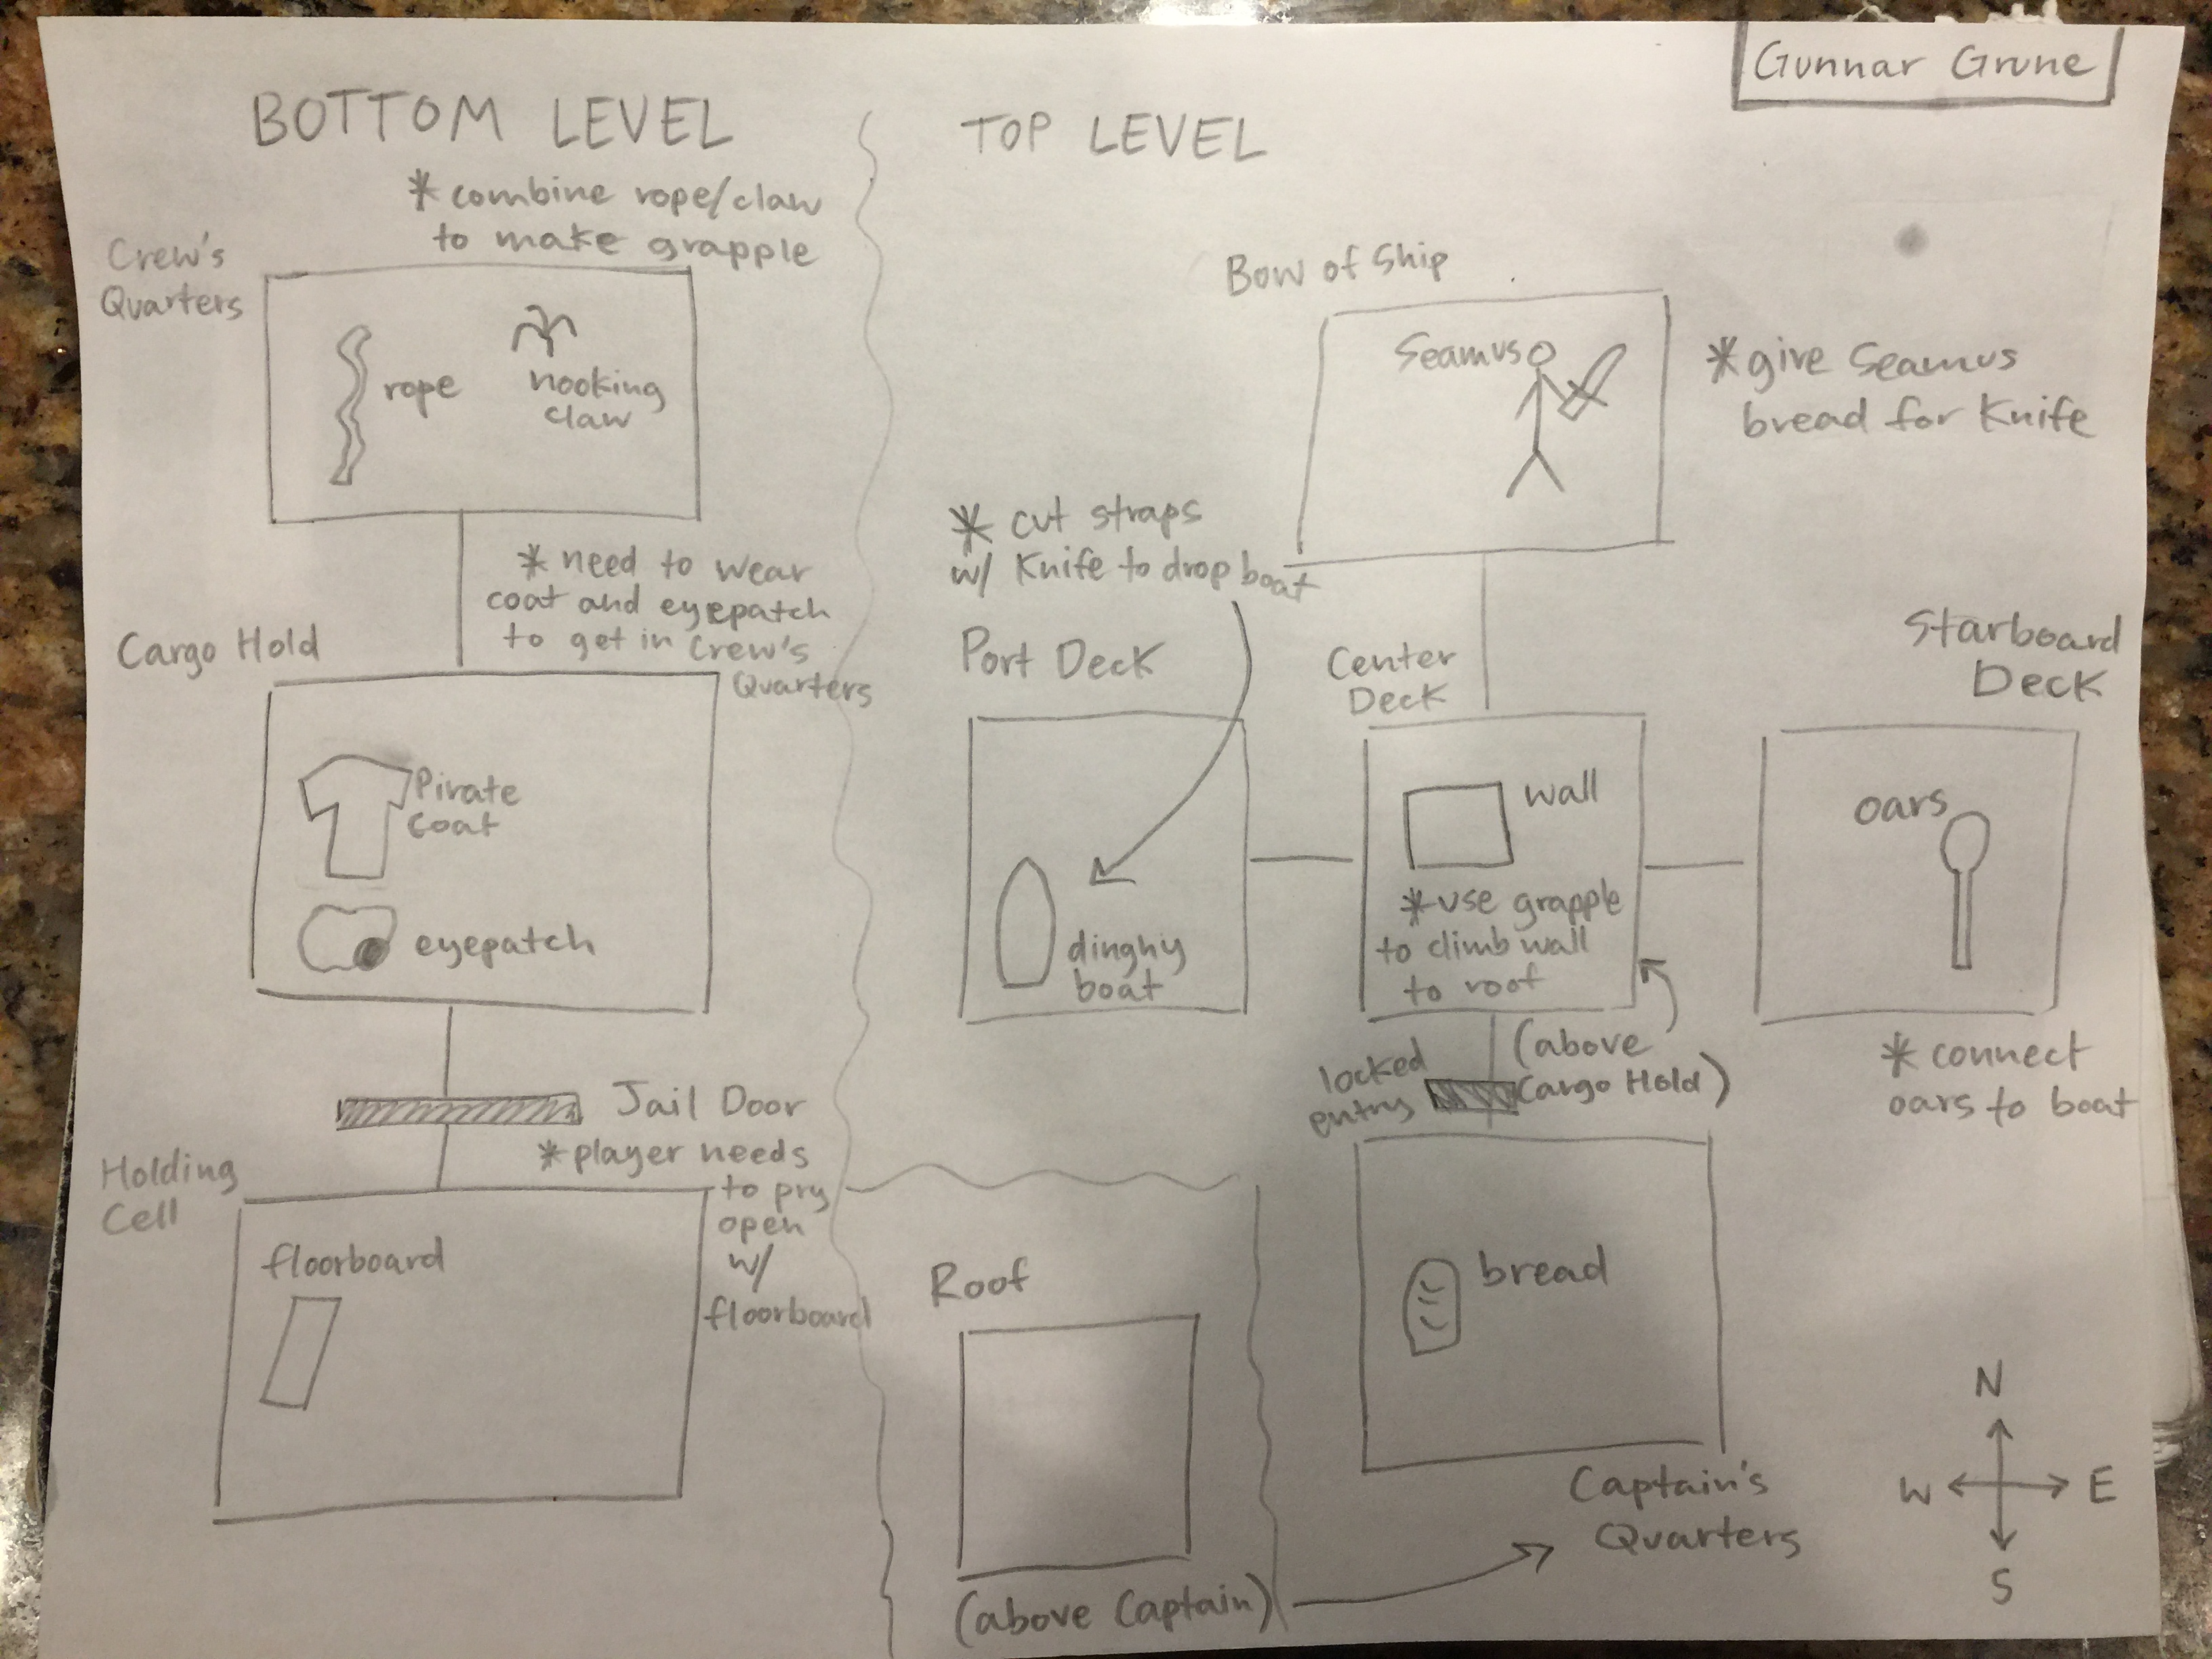 Gunnar Grune
BOTTOM LEVEL
*combine rope/claw
to make grapple
Crew's
Quarters
rope
hooking
claw
*need to wear
coat and eyepatch
to get in Crew's
Quarters
Cargo Hold
Pirate
coat
eyepatch
Jail Door
*player needs
to pry
open
w/
floorboard
Holding
Cell
floorboard
TOP LEVEL
Bow of Ship
Seamus
*give Seamus
bread for knife
*cut straps
w/ knife to drop boat
Port Deck
dinghy
boat
Center
Deck
wall
*use grapple
to climb wall
to roof
(above
Cargo Hold)
locked
entry
Starboard
Deck
oars
*connect
oars to boat
Roof
(above Captain)
bread
Captain's
Quarters
N
W E
S